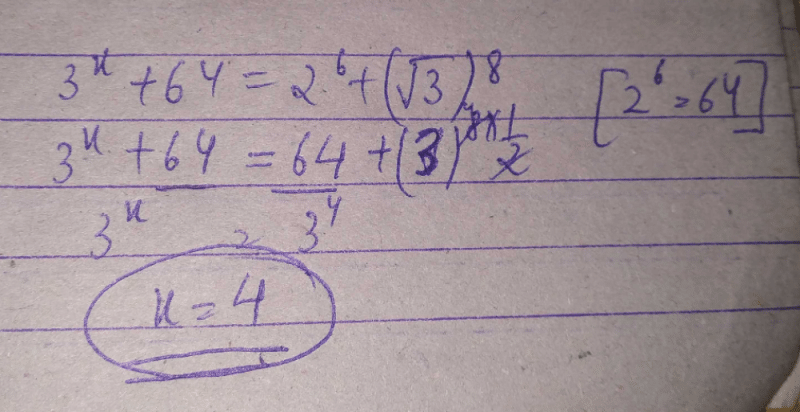 3^x + 64 = 2^6 + (√3)^8 [2^6 = 64]
3^x + 64 = 64 + (3)^8×1/2
3^x = 3^4
x = 4